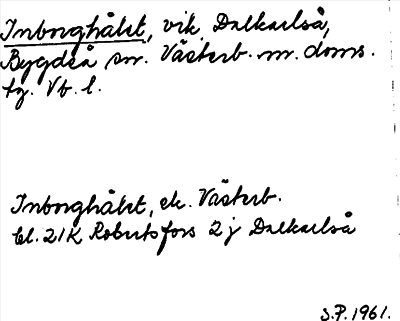 Inborghålet, vik, Dalkarlså,
Bygdeå sn. Västerb. n. doms.
tg. Vb. l.
Inborghålet, ek. Västerb.
bl. 21K Robertsfors 2 j Dalkarlså
S.P. 1961.